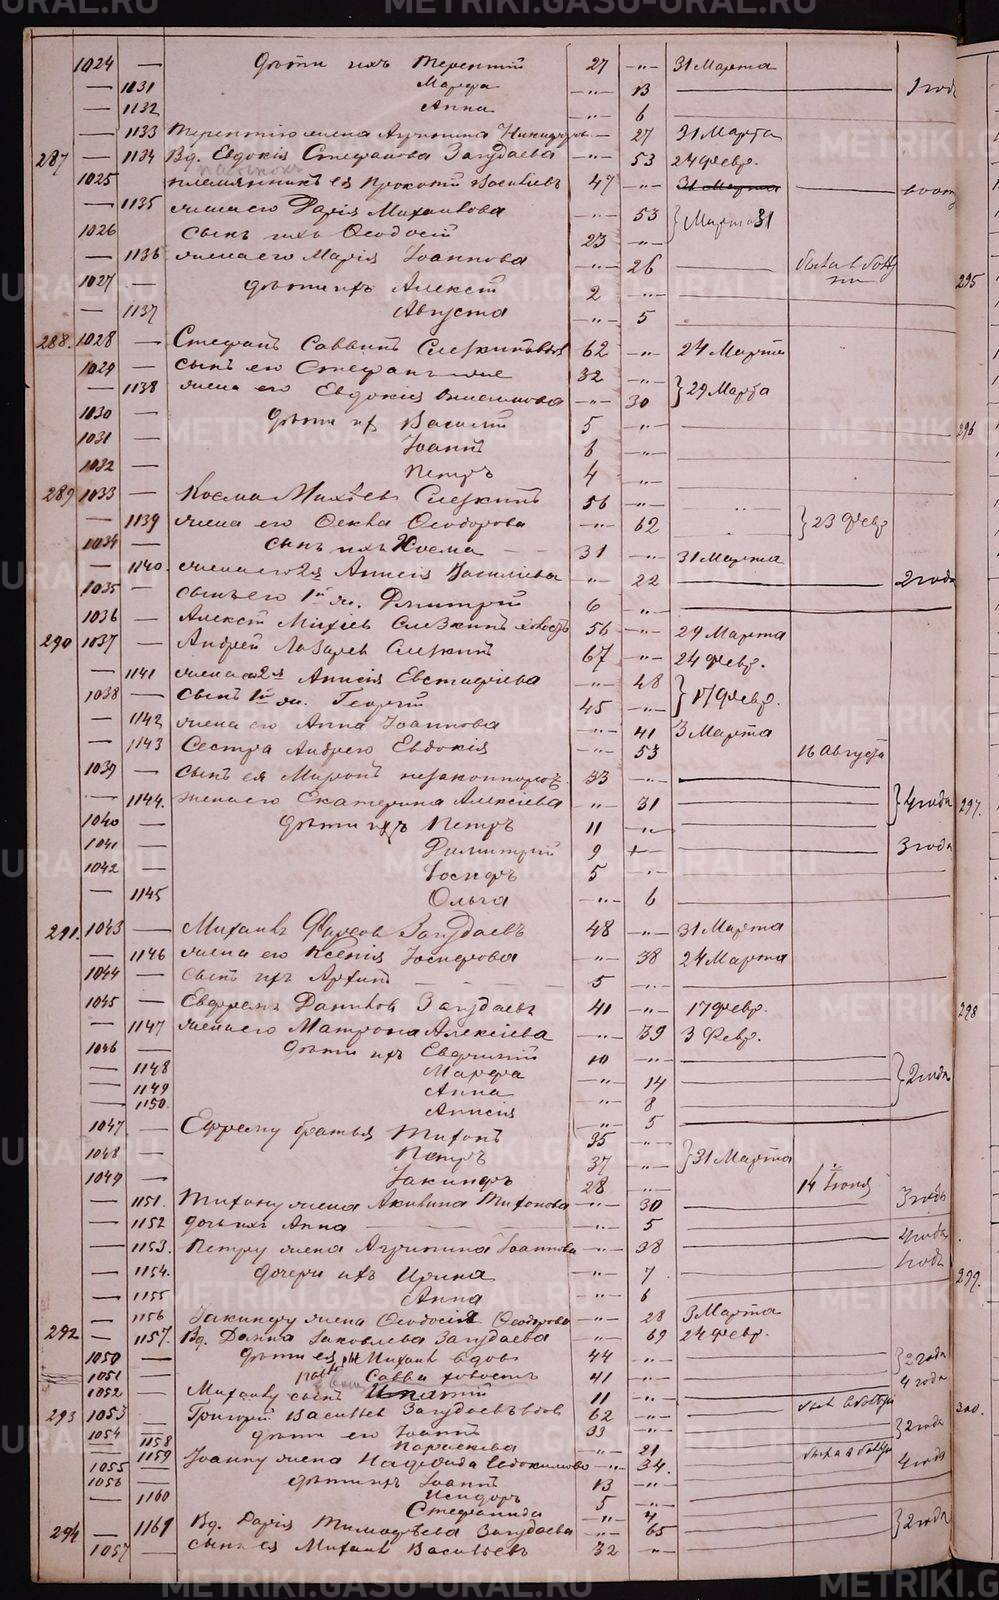 1024 — Дѣти ихъ Терентій 27 —"— 31 Марта
— 1131 Марфа —"— 13
— 1132 Анна —"— 6
— 1133 Терентію жена Агрипина —"— 27 31 Марта
287 — 1134 Вд. Евдокія Стефанова Загудаева —"— 53 24 Февр.
1025 племянникъ ея Прокопій Васильевъ 47 —"— 31 Марта
— 1135 жена его Дарія Михаилова —"— 53 } Марта 31
1026 сынъ ихъ Ѳеодосій 23 —"—
— 1136 жена его Марія Іоаннова —"— 26
1027 — дѣти ихъ Алексѣй 2 —"—
— 1137 Августа —"— 5
288. 1028 — Стефанъ Саввинъ 62 —"— 24 Марта
1029 — сынъ его Стефанъ 32
— 1138 жена его Евдокія —"— 30 } 29 Марта
1030 — дѣти их Василій 5 —"—
1031 — Іоаннъ 6 —"—
1032 — Петръ 4 —"—
289 1033 — Косма Михѣевъ Слезкинъ 56
— 1139 жена его Ѳекла Ѳеодорова —"— 62 } 23 Февр
1034 — сынъ ихъ Косма 31 —"— 31 Марта
— 1140. жена его 2я Анисія Васильева —"— 22 2 года
1035 — сынъ его 1й ж. Димитрій 6 —"—
1036 — Алексѣй Михѣевъ Слезкинъ холостъ 56 —"— 29 Марта
290 1037 — Андрей Лазаревъ Слезкинъ 67 —"— 24 Февр.
— 1141 жена его 2я Анисія Евстафіева —"— 48
1038 — сынъ 1й ж. Георгій 45 —"— } 17 Февр.
— 1142 жена его Анна Іоаннова —"— 41 3 Марта
— 1143 Сестра Андрею Евдокія —"— 53 16 Августа
1039 — сынъ ея Миронъ 33 —"—
— 1144. жена его Екатерина Алексѣева —"— 31 } 4 года
1040 — дѣти ихъ Петръ 11 —"—
1041 — Димитрій 9 3 года
1042 — Іосифъ 5 —"—
— 1145 Ольга —"— 6
291. 1043 — Михаилъ Фирсовъ Загудаевъ 48 —"— 31 Марта
— 1146 жена его Ксенія Іосифова —"— 38 24 Марта
1044 — сынъ ихъ Архипъ 5 —"—
1045 — Евфремъ Даниловъ Загудаевъ 41 —"— 17 Февр.
— 1147 жена его Матрона Алексѣева —"— 39 3 Февр.
1046 — дѣти ихъ Евфимій 10 —"—
— 1148 Марфа —"— 14 } 2 года
— 1149 Анна —"— 8
— 1150. Анисія —"— 5
1047 — Ефрему братья Тихонъ 35
1048 — Петръ 37 —"— } 31 Марта
1049 — Іакинфъ 28 —"— 14 Іюня
— 1151. Тихону жена Акилина Тихонова —"— 30 3 года
— 1152 дочь ихъ Анна —"— 5
— 1153. Петру жена Агрипина Іоаннова —"— 38
— 1154. дочери ихъ Ирина —"— 7
— 1155 Анна —"— 6
— 1156 Іакинфу жена Ѳеодосія Ѳеодорова —"— 28 3 Марта
292 — 1157. Вд. Іаковлева Загудаева —"— 69 24 Февр.
1050 — дѣти ея Михаилъ вдовъ 44 —"— } 2 года
1051 — Савва холостъ 41 —"— 4 года
1052 — Михаилу сынъ 11 —"—
293 1053 — Григорій Васильевъ Загудаевъ вдов 62 —"—
1054 — дѣти его Іоаннъ 33 —"— } 2 года
— 1158 Параскева —"— 21
— 1159 Іоанну жена Надежда Евдокимова —"— 34. 4 года
1055 — дѣти ихъ Іоаннъ 13 —"—
1056 — Исидоръ 5 —"—
— 1160 Стефанида —"— 4
294 — 1161 Вд. Дарія Тимофѣева Загудаева —"— 65 } 2 года
1057 — сынъ ея Михаилъ Васильевъ 32 —"—
295
296
297.
298
299.
300.
METRIKI.GASO-URAL.RU